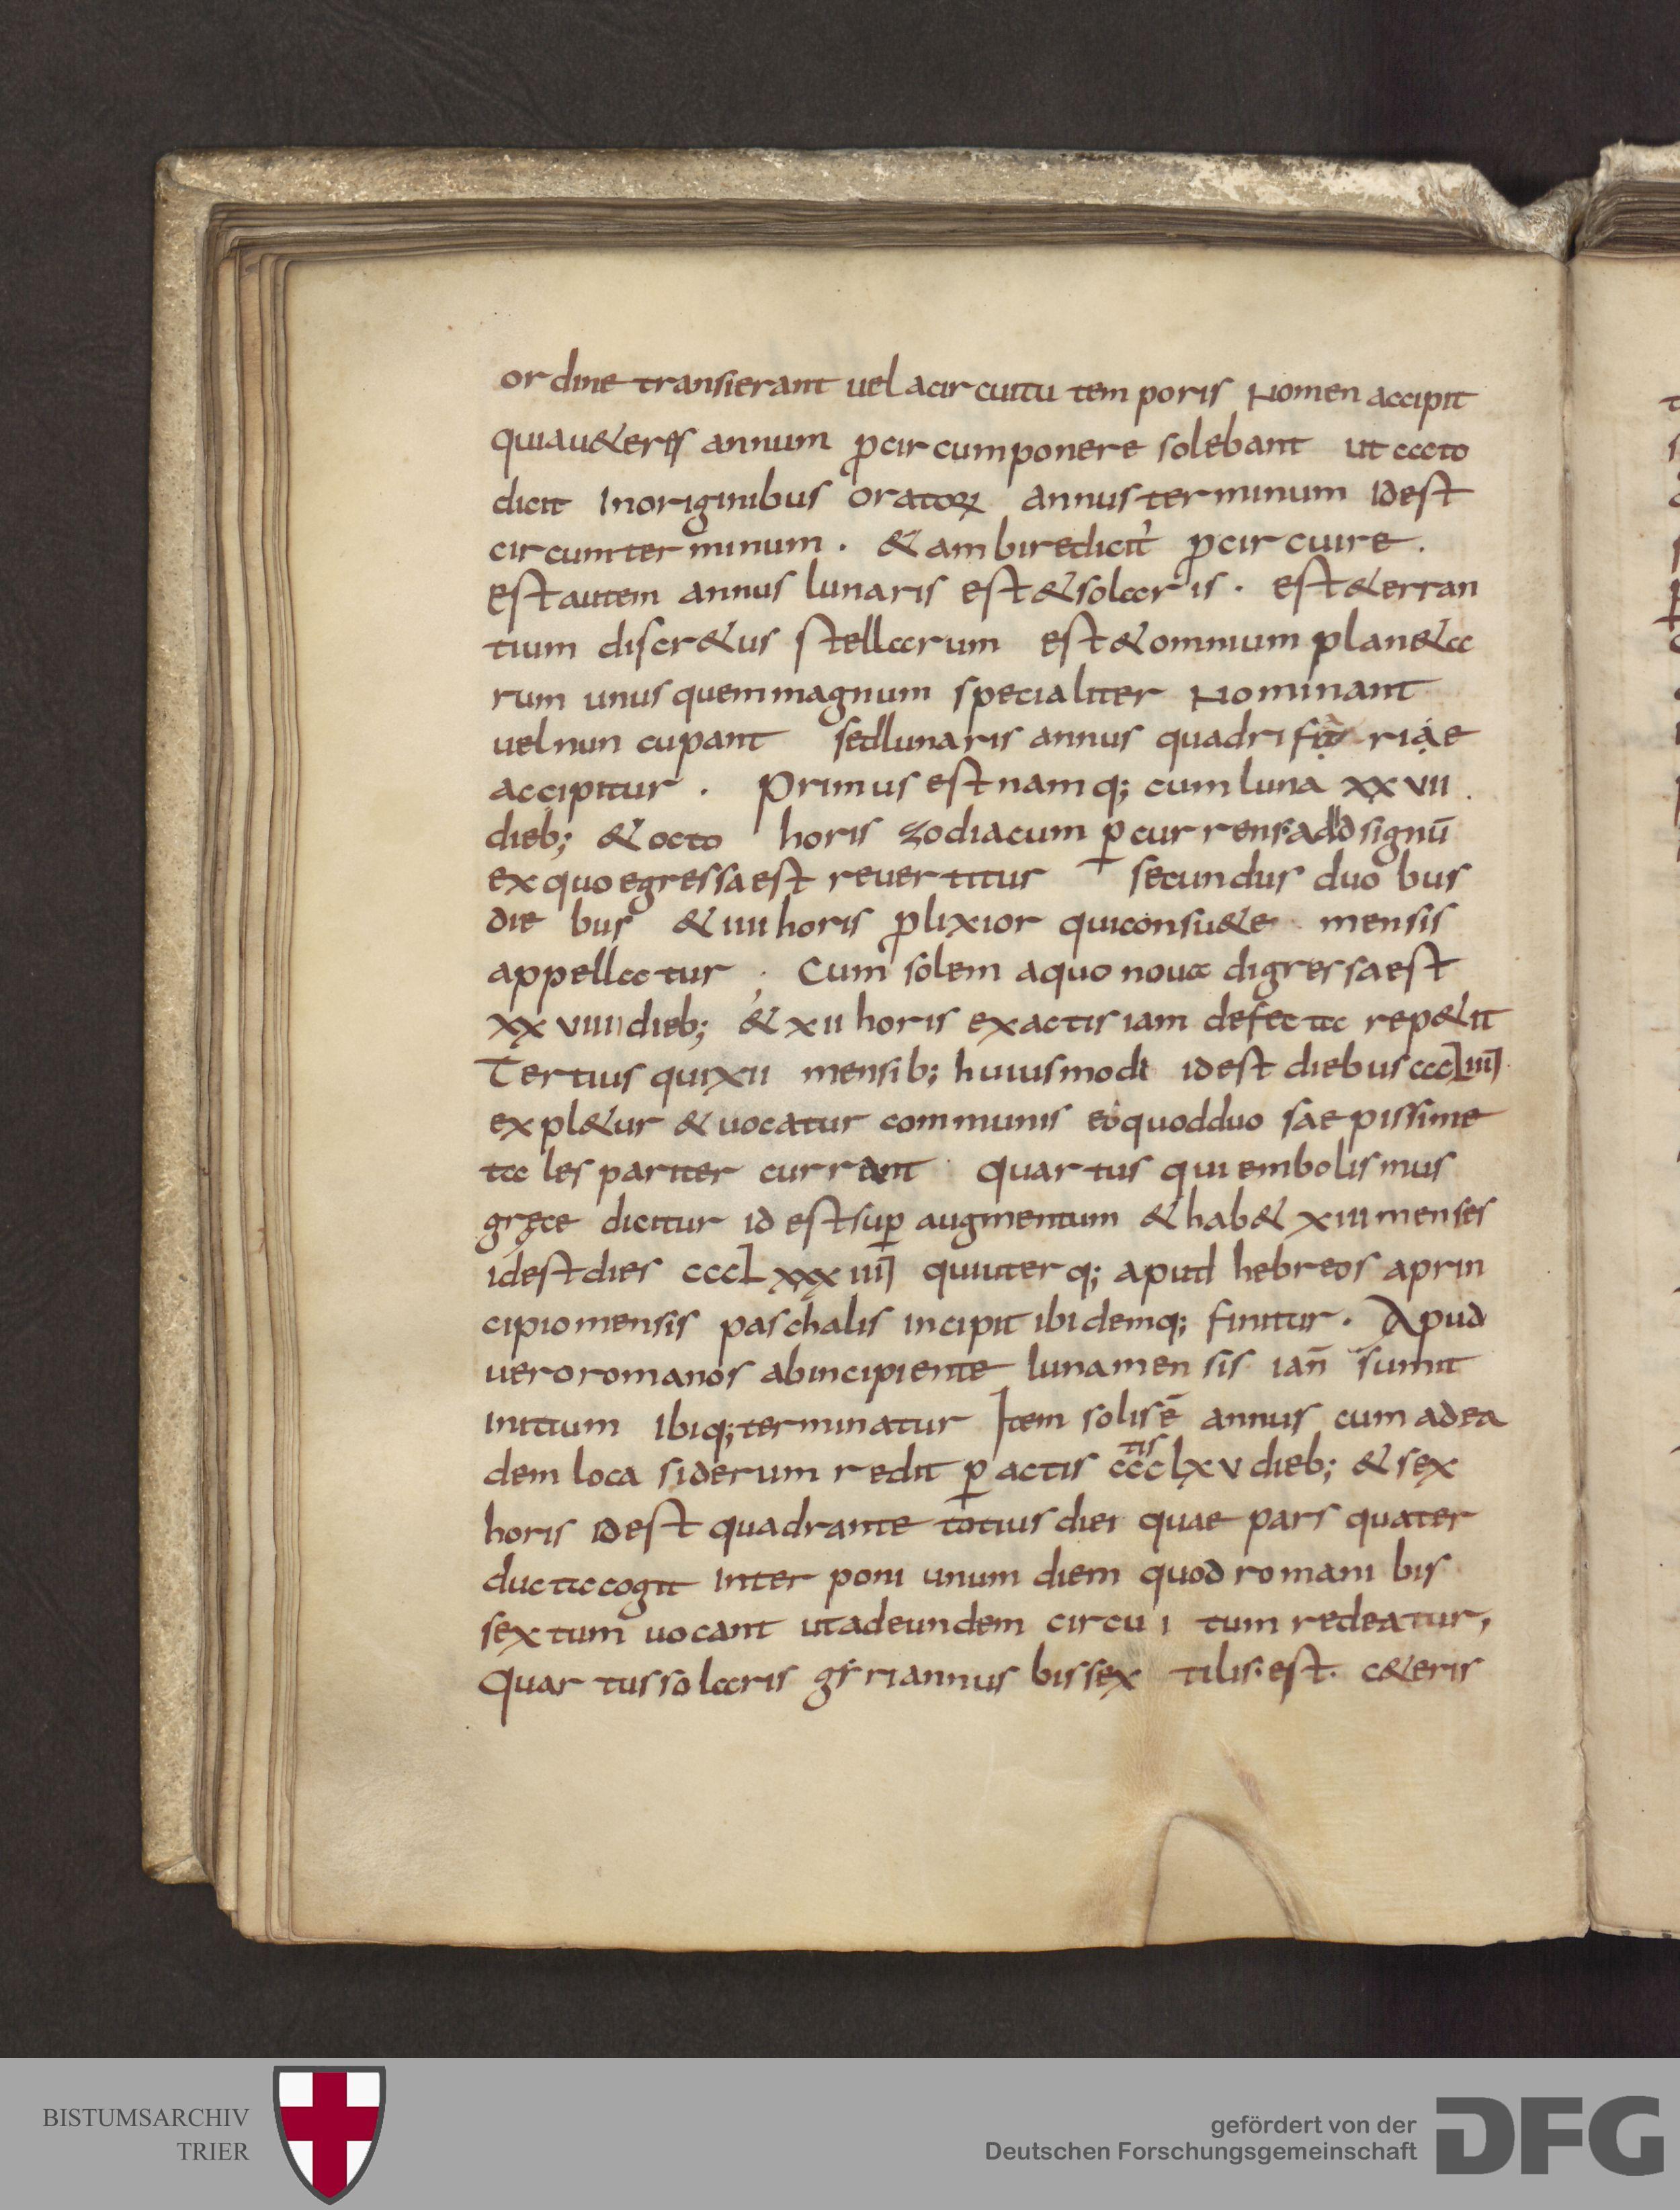 ordine transierant uel acircuitu temporis Nomen accipit
quiau&eres annum ꝓcircumponere solebant ut ccoto
dicit Inoriginibus oratoꝝ annus terminum idest
circumterminum . & ambiredicit᷑ ꝓcircuire .
Estautem annus lunaris est&solaris . est&erran
tium discr&us stellarum est&omnium plan&a
rum unus quemmagnum specialiter Nominant
uelnuncupant sedlunaris annus quadrifariae
accipitur . Primus est namq; cumluna xxvii .
dieb; & octo horis zodiacum ꝑcurrens addsignū
exquoegressaest reuertitur secundus duobus
diebus & iiii horis ꝓlixior quiconsu&e mensis
appellatur . Cum solem aquo noua digressaest
xxviiii dieb; & xii horis exactis iam defecta rep&it
Tertius quixii mensib; huiusmodi idest diebus cccliiii
expl&ur & uocatur communis eoquodduo saepissime
tales pariter currant quartus qui embolismus
gręce dicitur id est suꝑ augmentum & hab& xiii menses
idest dies ccclxxxiiii quiuterq; apud hebreos aprin
cipiomensis paschalis incipit ibidemq; finitur . Apud
ueroromanos abincipiente lunamensis ian̄ sumit
initium Ibiq; terminatur Item solisē annus cum adea
dem loca siderum redit ꝑactis ccctislxv dieb; & sex
horis idest quadrante totius diei quae pars quater
ducta cogit Interponi unum diem quod romani bis
sextum uocant utadeundem circuitum redeatur,
Quartus solaris gr̄riannus bissextilis est . c&eris
BISTUMSARCHIV
TRIER
gefördert von der
Deutschen Forschungsgemeinschaft
DFG